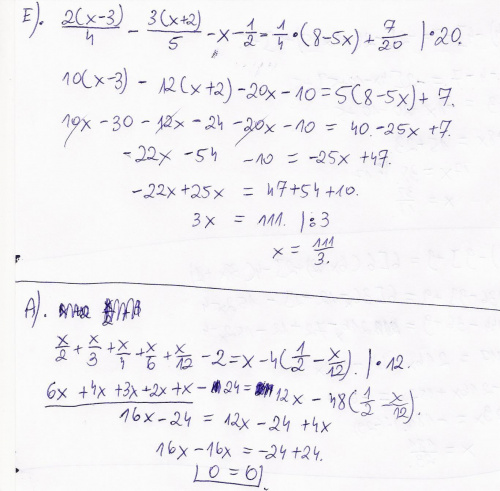 E). 2(x-3)/4 - 3(x+2)/5 - x - 1/2 = 1/4 • (8-5x) + 7/20 |•20.
10(x-3) - 12(x+2) - 20x - 10 = 5(8-5x) + 7.
10x - 30 - 12x - 24 - 20x - 10 = 40 - 25x + 7.
-22x - 54 - 10 = -25x + 47.
-22x + 25x = 47 + 54 + 10.
3x = 111. |:3
x = 111/3.
A).
x/2 + x/3 + x/4 + x/6 + x/12 - 2 = x - 4(1/2 - x/12). |•12.
6x + 4x + 3x + 2x + x - 24 = 12x - 48(1/2 - x/12).
16x - 24 = 12x - 24 + 4x
16x - 16x = -24 + 24.
0 = 0